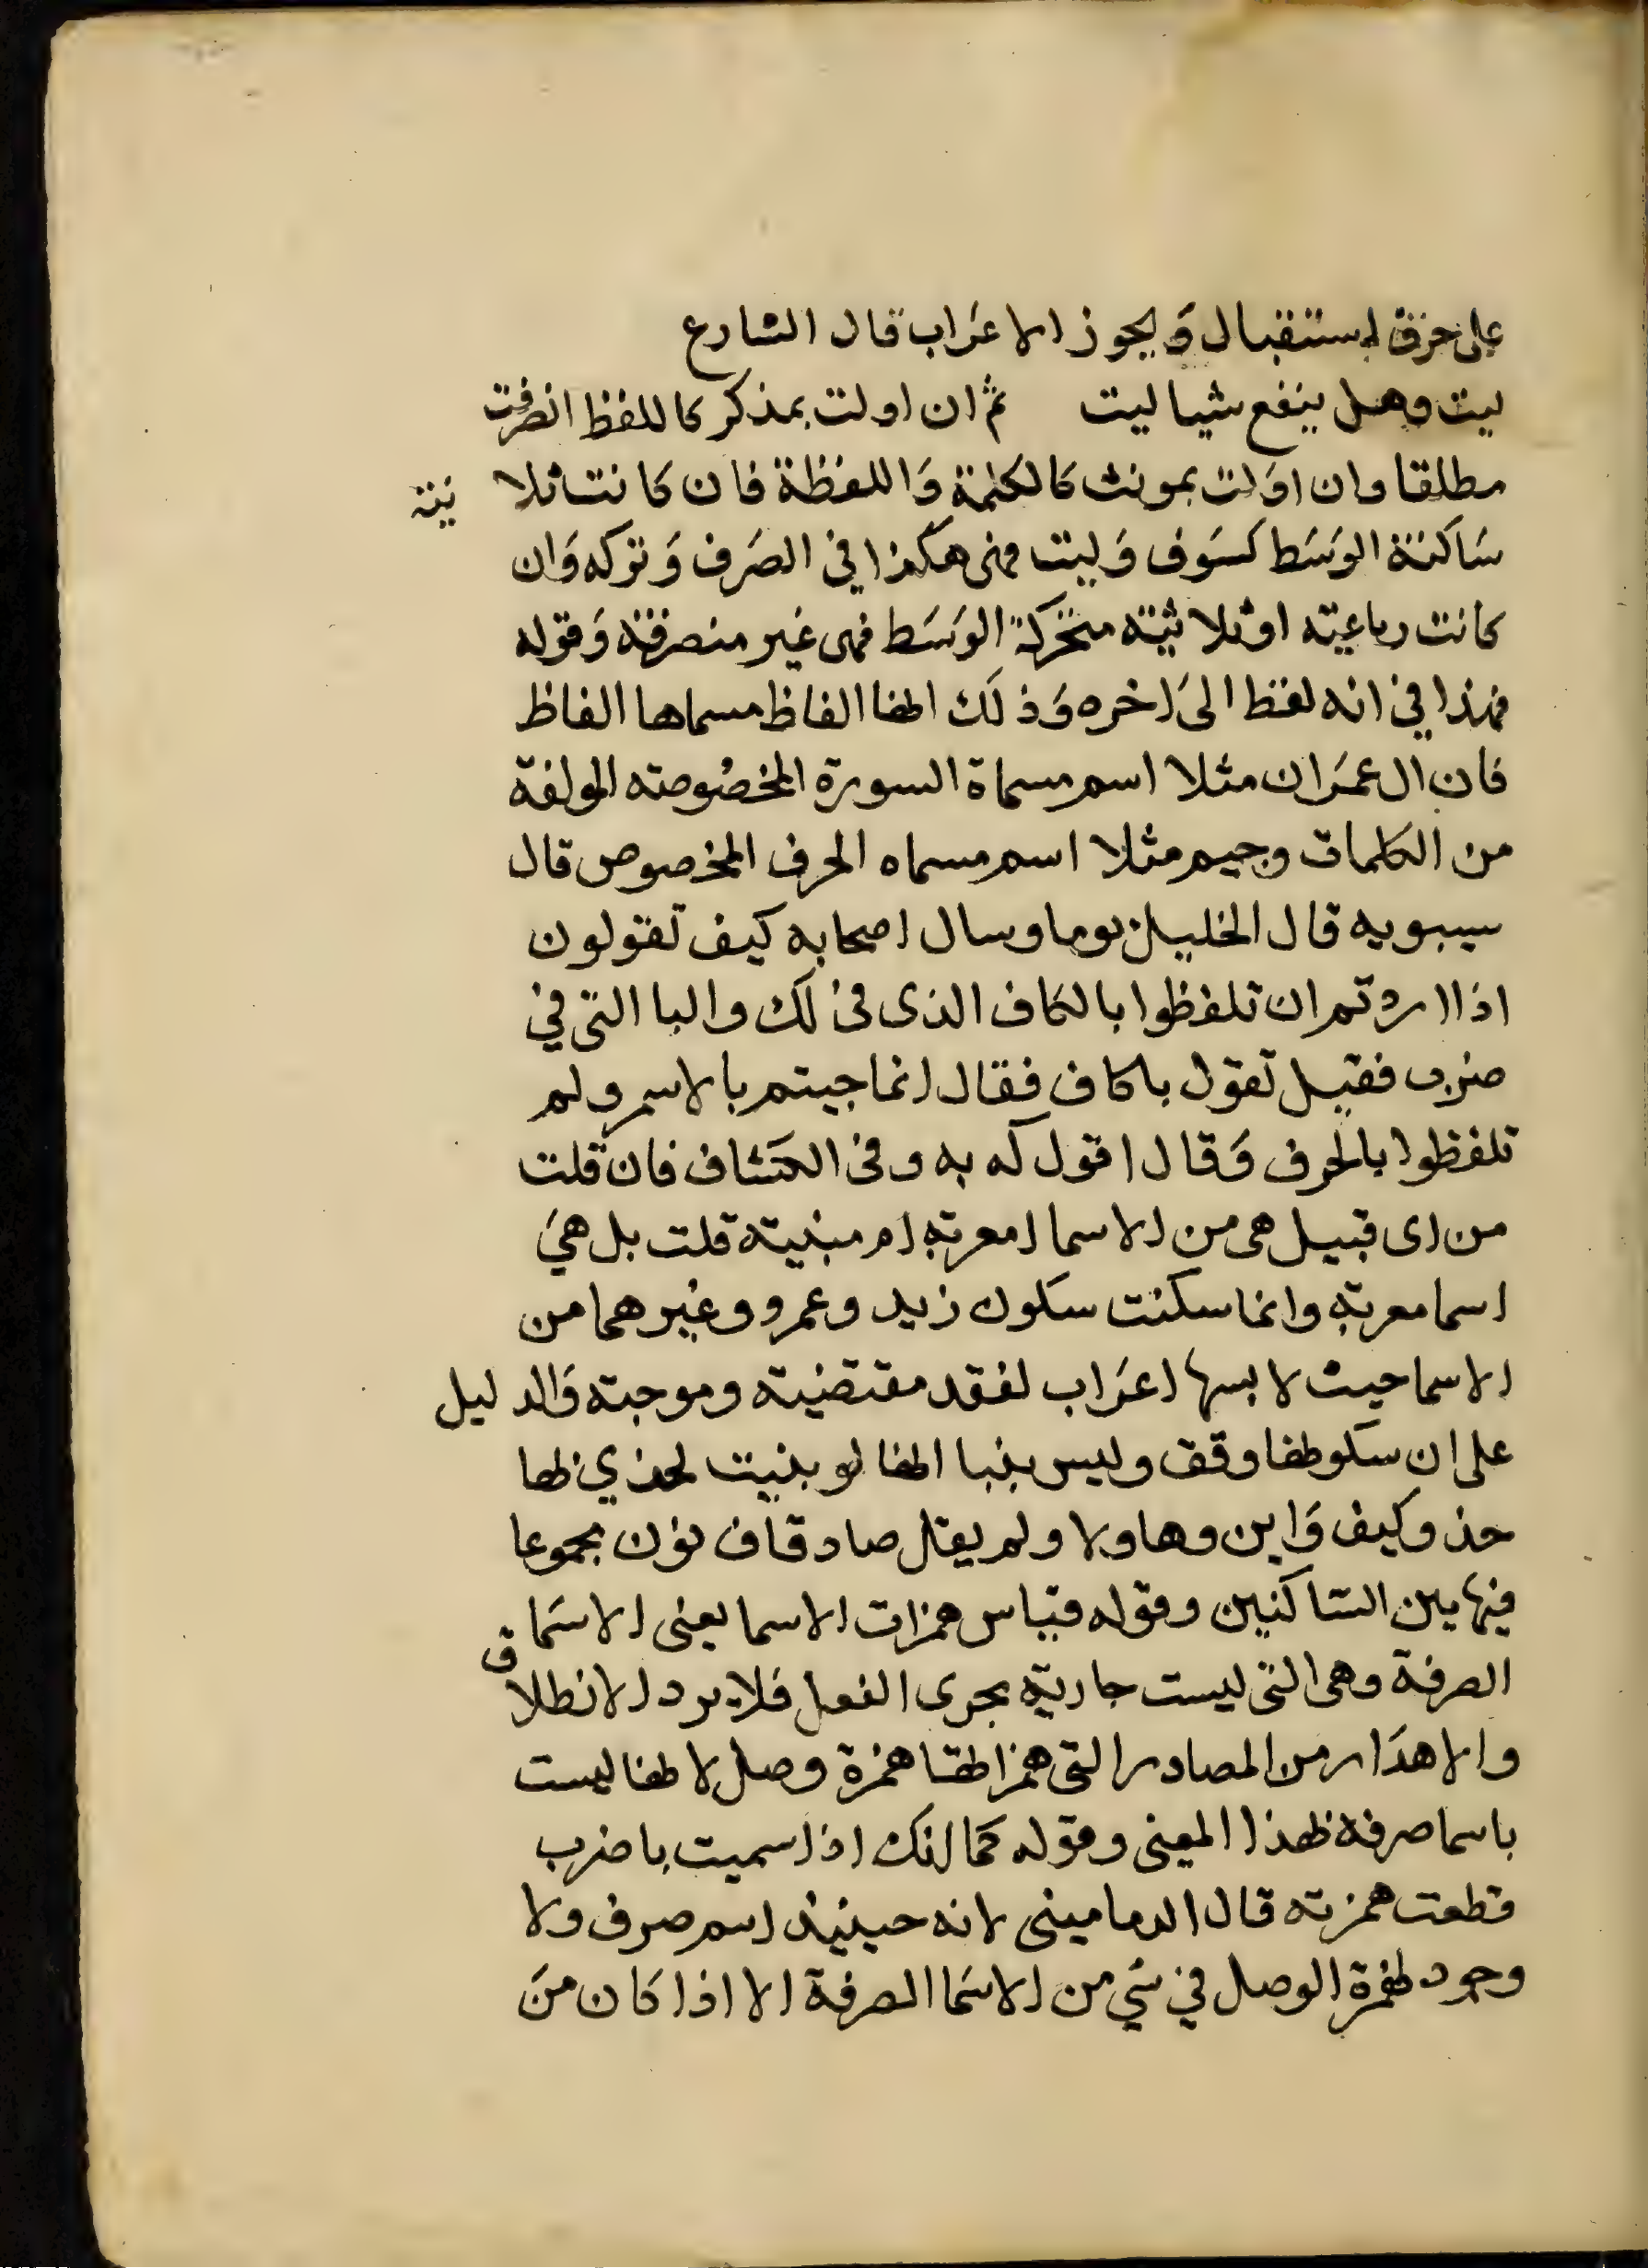 على حرف استقبال وَيجوز الاعرَاب قال الشارع
ليت وهل ينفع شيا ليت ثم ان اولت بمذكر كاللفظ انصرفت
مطلقا وان اوَلت بمونث كالكلمة وَاللفظة فان كانت ثلا ثية
سَاكنة الوسَط كسَوف وَليت فهى هكذا في الصَرف وَتركه وَان
كانت رباعية او ثلاثية متحركة الوسَط فهى غير منصرفة وَقوله
فهذا في انه لفظ الىَ اخره وَذلَك انها الفاظ مسماها الفاظ
فان ال عمرَان مثلا اسم مسماة السورة المخصُوصة المولفة
من الكلمات وجيم مثلا اسم مسماه الحرف المخصوص قال
سيبويه قال الخليل يوما وسال اصحابه كيف تقولون
اذا اردتم ان تلفظوا بالكاف الذى فى لك والبا التى في
ضرب فقيل تقول باكاف فقال انما جيتم بالاسم ولم
تلفظوا بالحرف وَقال اقول كه به وفى الكشاف فان قلت
من اى قبيل هى من الاسما امعربة ام مبنية قلت بل هىَ
اسما معربة وانما سكنت سكون زيد وعمرو وغيرهما من
الاسما حيث لا بسها اعرَاب لفقد مقتضية وموجبة وَالدليل
على ان سكونها وقف وليس ببنا انها لو بنيت لحذي بها
حذو كيف وَاين وهاولا ولم يقل صاد قاف نون مجموعا
فيها بين الساكنين وقوله قياس همزات الاسما يعنى الاسَما
الصرفة وهى التى ليست جارية مجرى الفعل فلا يرد الانطلاق
والاهدَار من المصادر التى همزاتها همزة وصل لانها ليست
باسما صرفة بهذا المعنى وقوله كما انك اذا سميت باضرب
قطعت همزته قال الدمامينى لانه حينيذ اسم صرف ولا
وجود لهمزة الوصل في شي من الاسَما الصرفة الا اذا كان منَ